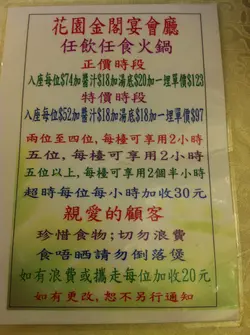 花園金閣宴會廳
任飲任食火鍋
正價時段
入座每位$74加醬汁$18加湯底$20加一埋單價$123
特價時段
入座每位$52加醬汁$18加湯底$18加一埋單價$97
兩位至四位,每檯可享用2小時
五位,每檯可享用2小時
五位以上,每檯可享用2個半小時
超時每位每小時加收30元
親愛的顧客
珍惜食物;切勿浪費
食唔晒請勿倒落煲
如有浪費或攜走每位加收20元
如有更改,恕不另行通知